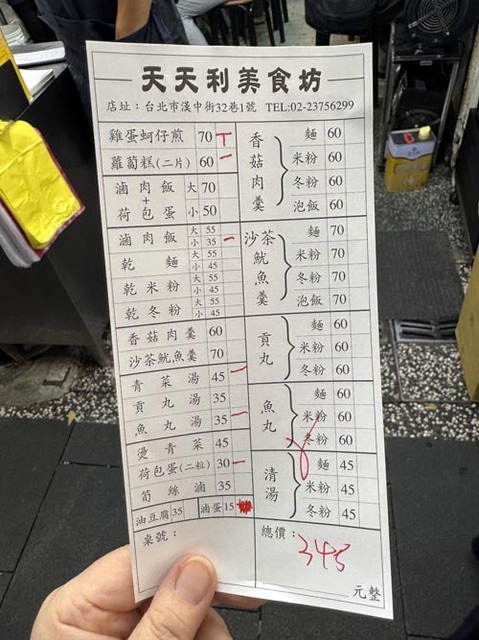 天天利美食坊
店址：台北市漢中街32巷1號 TEL:02-23756299
雞蛋蚵仔煎 70 T
蘿蔔糕(二片) 60 一
滷肉飯+荷包蛋 大 70
小 50
滷肉飯 大 55
小 35 一
乾麵 大 55
小 45
乾米粉 大 55
小 45
乾冬粉 大 55
小 45
香菇肉羹 60
沙茶魷魚羹 70
青菜湯 45 一
貢丸湯 35
魚丸湯 35 一
燙青菜 45
荷包蛋(二粒) 30 一
筍絲滷 35
油豆腐 35 滷蛋 15
桌號：
香菇肉羹 麵 60
米粉 60
冬粉 60
泡飯 60
沙茶魷魚羹 麵 70
米粉 70
冬粉 70
泡飯 70
貢丸 麵 60
米粉 60
冬粉 60
魚丸 麵 60
米粉 60
冬粉 60
清湯 麵 45
米粉 45
冬粉 45
總價：
345
元整